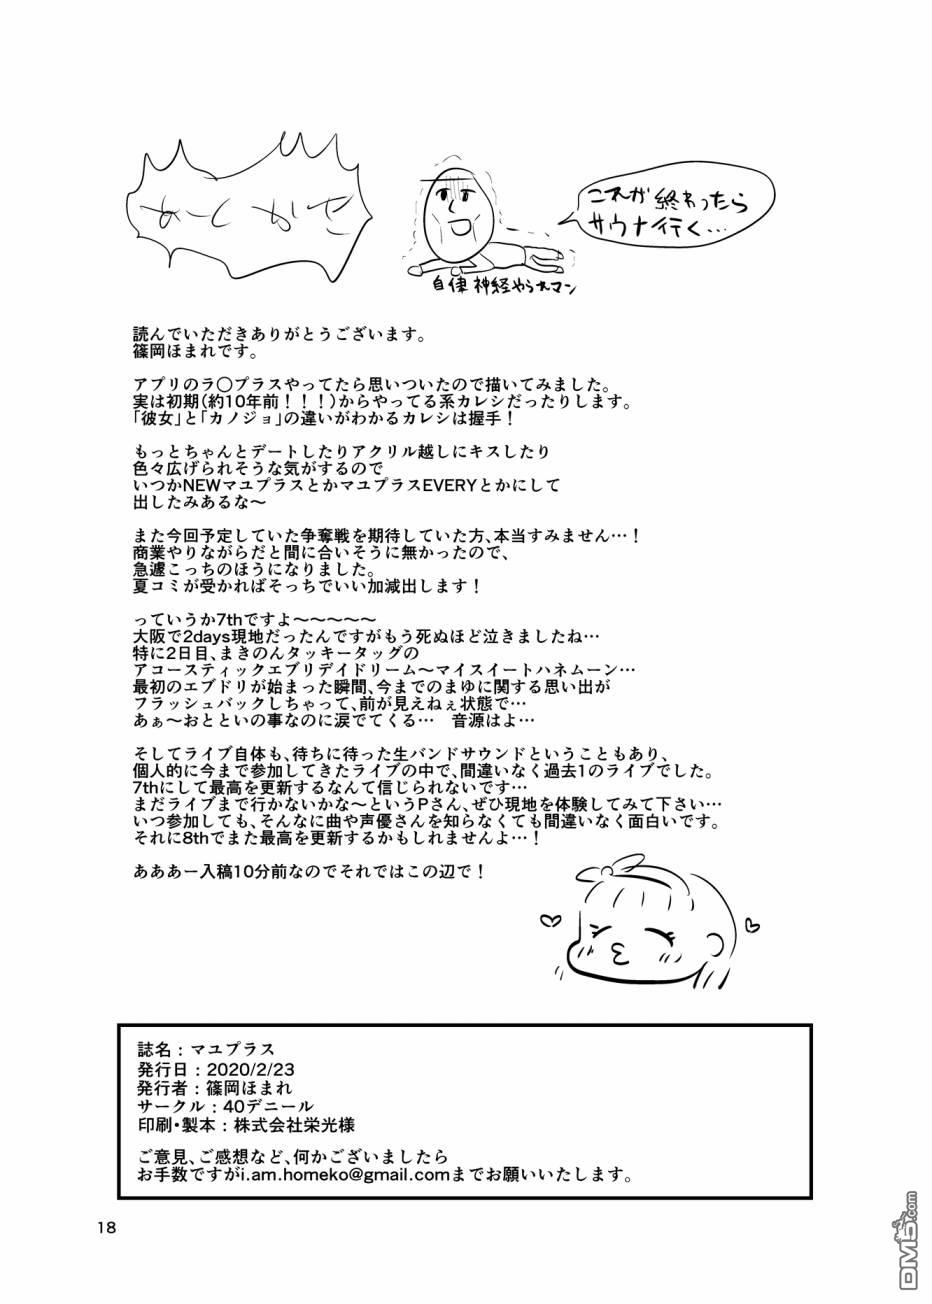 あとがき
これが終わったら
サウナ行く…
自律神経やられマン
読んでいただきありがとうございます。
篠岡ほまれです。
アプリのラ〇プラスやってたら思いついたので描いてみました。
実は初期(約10年前！！！)からやってる系カレシだったりします。
「彼女」と「カノジョ」の違いがわかるカレシは握手！
もっとちゃんとデートしたりアクリル越しにキスしたり
色々広げられそうな気がするので
いつかNEWマユプラスとかマユプラスEVERYとかにして
出したみあるな〜
また今回予定していた争奪戦を期待していた方、本当すみません…！
商業やりながらだと間に合いそうに無かったので、
急遽こっちのほうになりました。
夏コミが受かればそっちでいい加減出します！
っていうか7thですよ〜〜〜〜〜
大阪で2days現地だったんですがもう死ぬほど泣きましたね…
特に2日目、まきのんタッキータッグの
アコースティックエブリデイドリーム〜マイスイートハネムーン…
最初のエブドリが始まった瞬間、今までのまゆに関する思い出が
フラッシュバックしちゃって、前が見えねぇ状態で…
あぁ〜おとといの事なのに涙でてくる…　音源はよ…
そしてライブ自体も、待ちに待った生バンドサウンドということもあり、
個人的に今まで参加してきたライブの中で、間違いなく過去1のライブでした。
7thにして最高を更新するなんて信じられないです…
まだライブまで行かないかな〜というPさん、ぜひ現地を体験してみて下さい…
いつ参加しても、そんなに曲や声優さんを知らなくても間違いなく面白いです。
それに8thでまた最高を更新するかもしれませんよ…！
あああー入稿10分前なのでそれではこの辺で！
誌名：マユプラス
発行日：2020/2/23
発行者：篠岡ほまれ
サークル：40デニール
印刷・製本：株式会社栄光様
ご意見、ご感想など、何かございましたら
お手数ですがi.am.homeko@gmail.comまでお願いいたします。
18
DM5.com